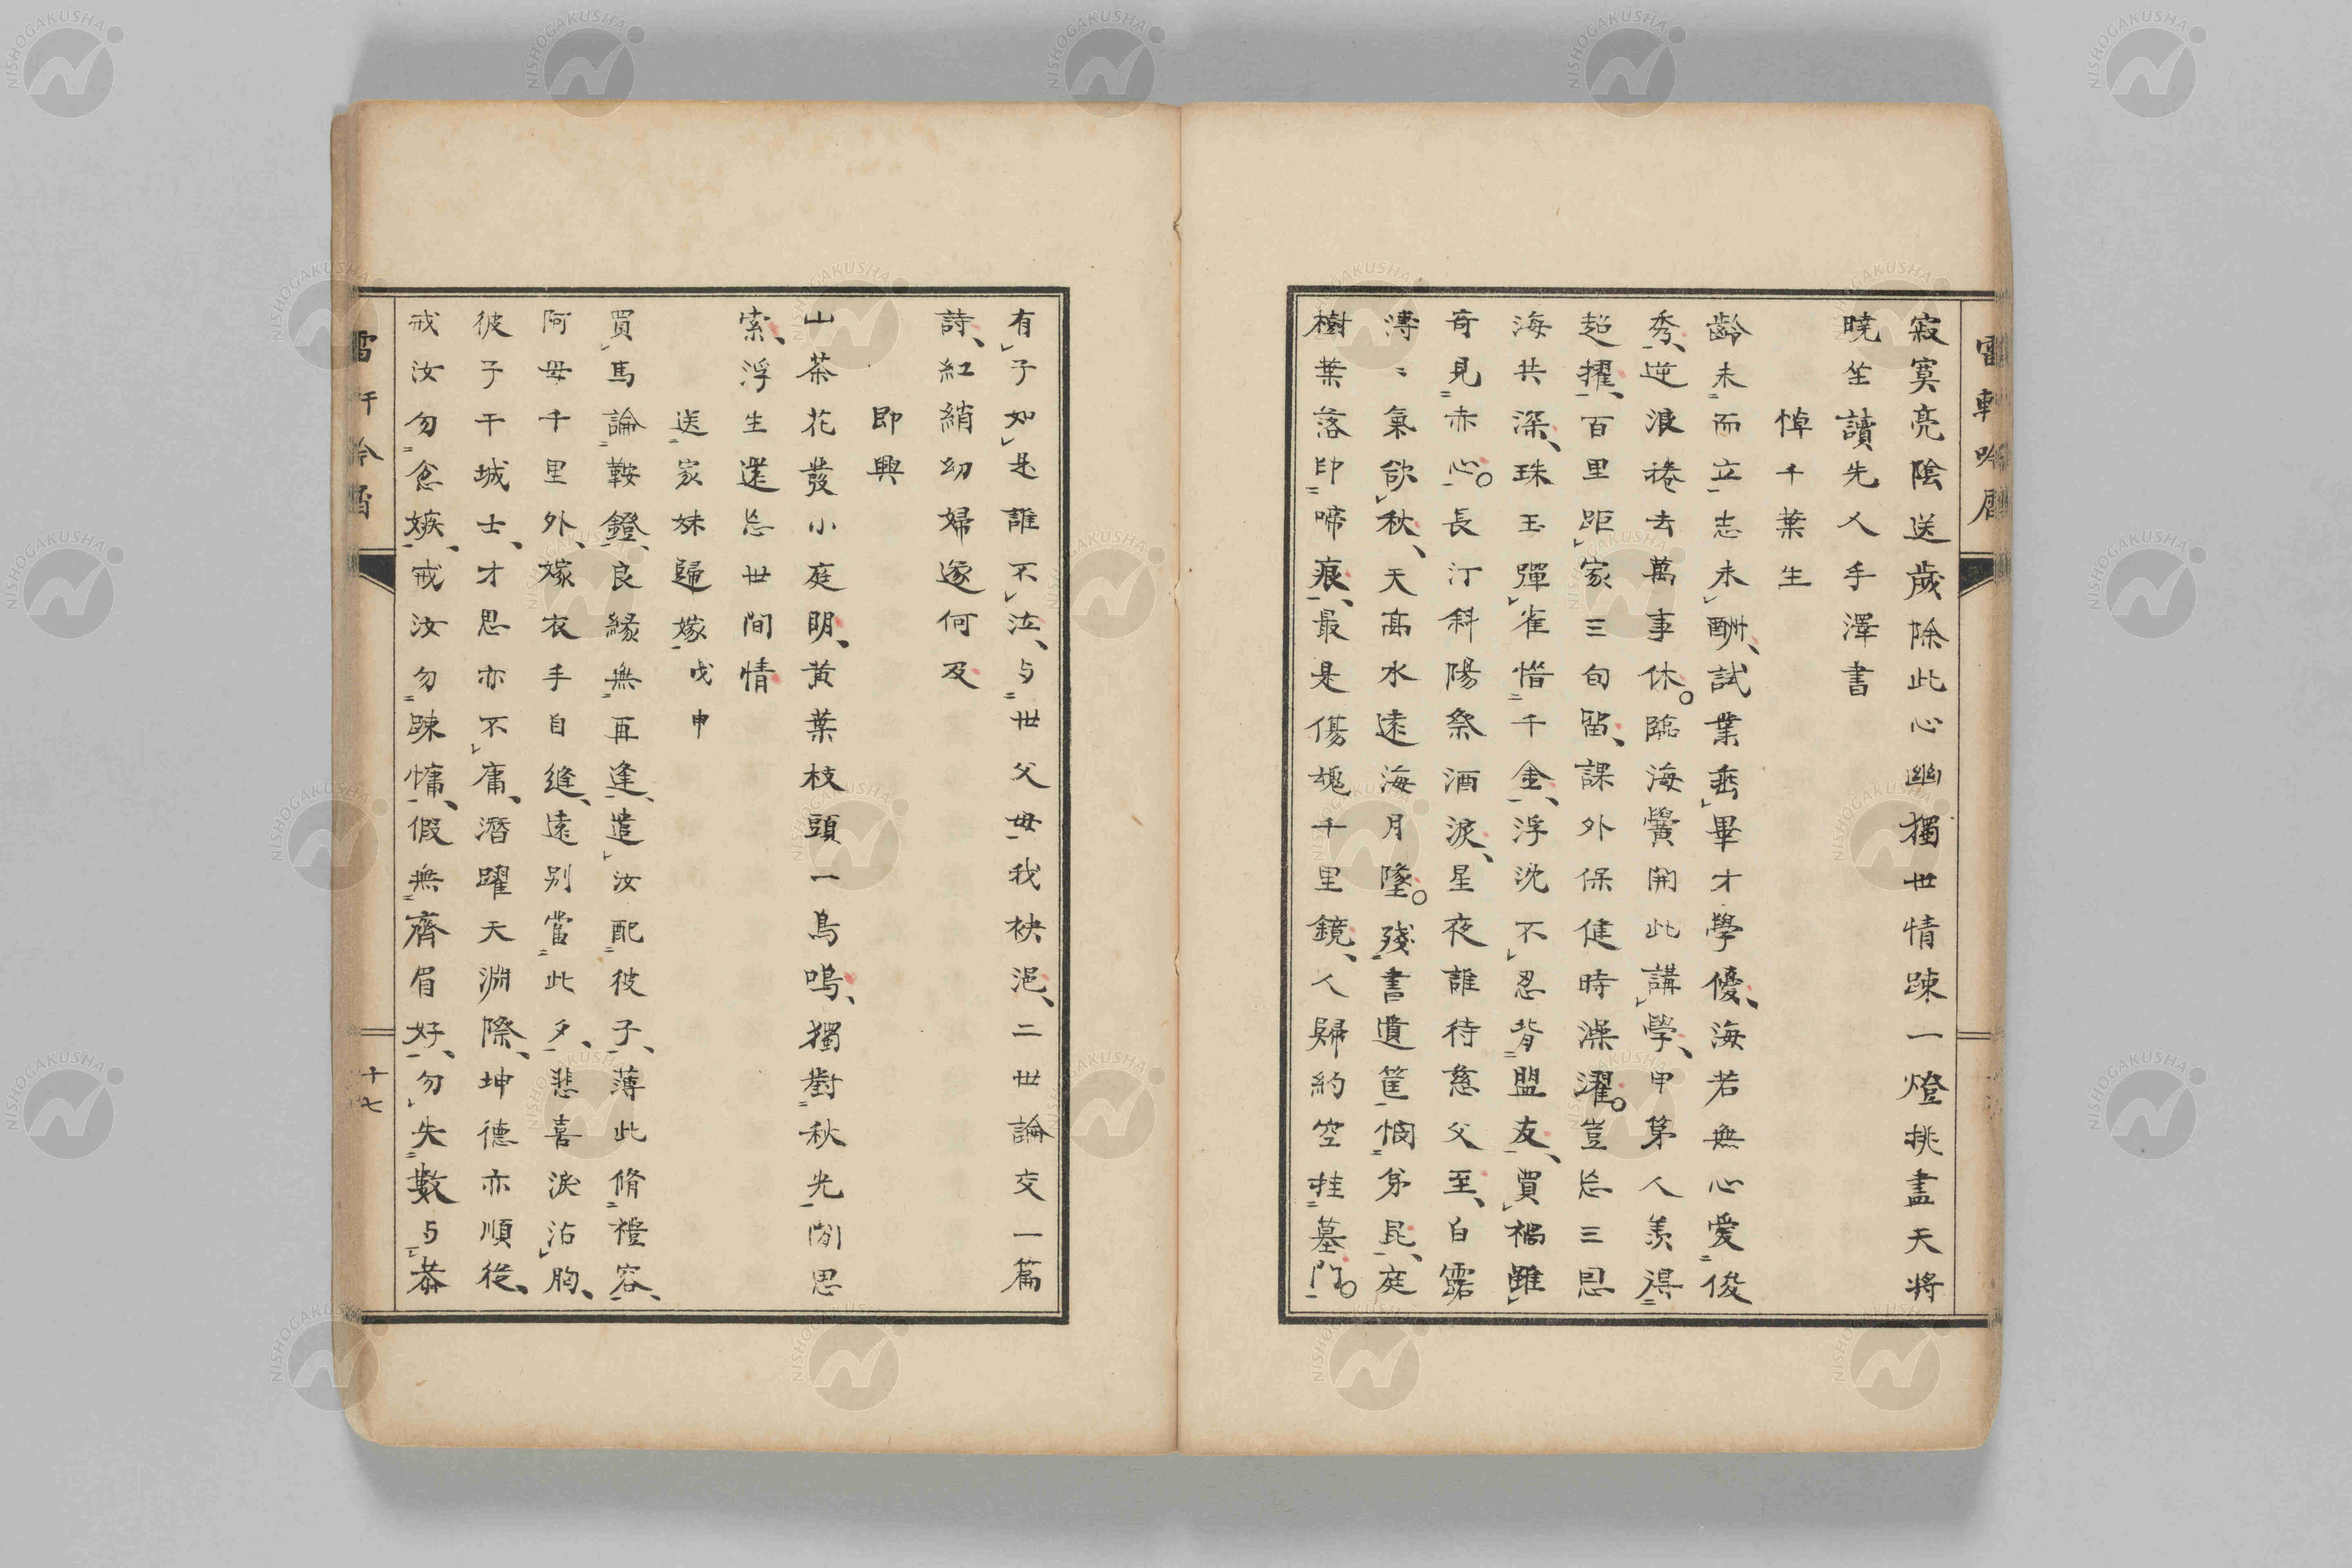 寂寞亮陰送歲除此心幽獨世情踈一燈挑盡天將
曉坐讀先人手澤書
悼千葉生
齡未而立志未酬、試業垂畢才學優、海若無心愛俊
秀、逆浪捲去萬事休。臨海黌開此講學、甲第人羨得
超擢、百里距家三旬留、課外保健時澡濯。豈忘三思
海共深、珠玉彈雀惜千金、浮沈不忍背盟友、買禍雖
奇見赤心。長汀斜陽祭酒淚、星夜誰待慈父至、白露
漙〻氣欲秋、天高水遠海月墜。殘書遺筐悯弟昆、庭
樹葉落印啼痕、最是傷魂千里鏡、人歸約空挂墓門。
有子如是誰不泣、与世父母我袂浥、二世論交一篇
詩、紅綃幼婦遂何及
即興
山茶花發小庭明、黃葉枝頭一鳥鳴、獨對秋光閒思
索、浮生還忘世間情
送家妹歸嫁 戊申
買馬論鞍鐙、良緣無再逢、遣汝配彼子、薄此脩禮容、
阿母千里外、嫁衣手自縫、遠別當此夕、悲喜淚沾胸、
彼子干城士、才思亦不庸、潛躍天淵際、坤德亦順從、
戒汝勿念嫉、戒汝勿踈慵、假無齊眉好、勿失數与恭
十七
NISHOGAKUSHA